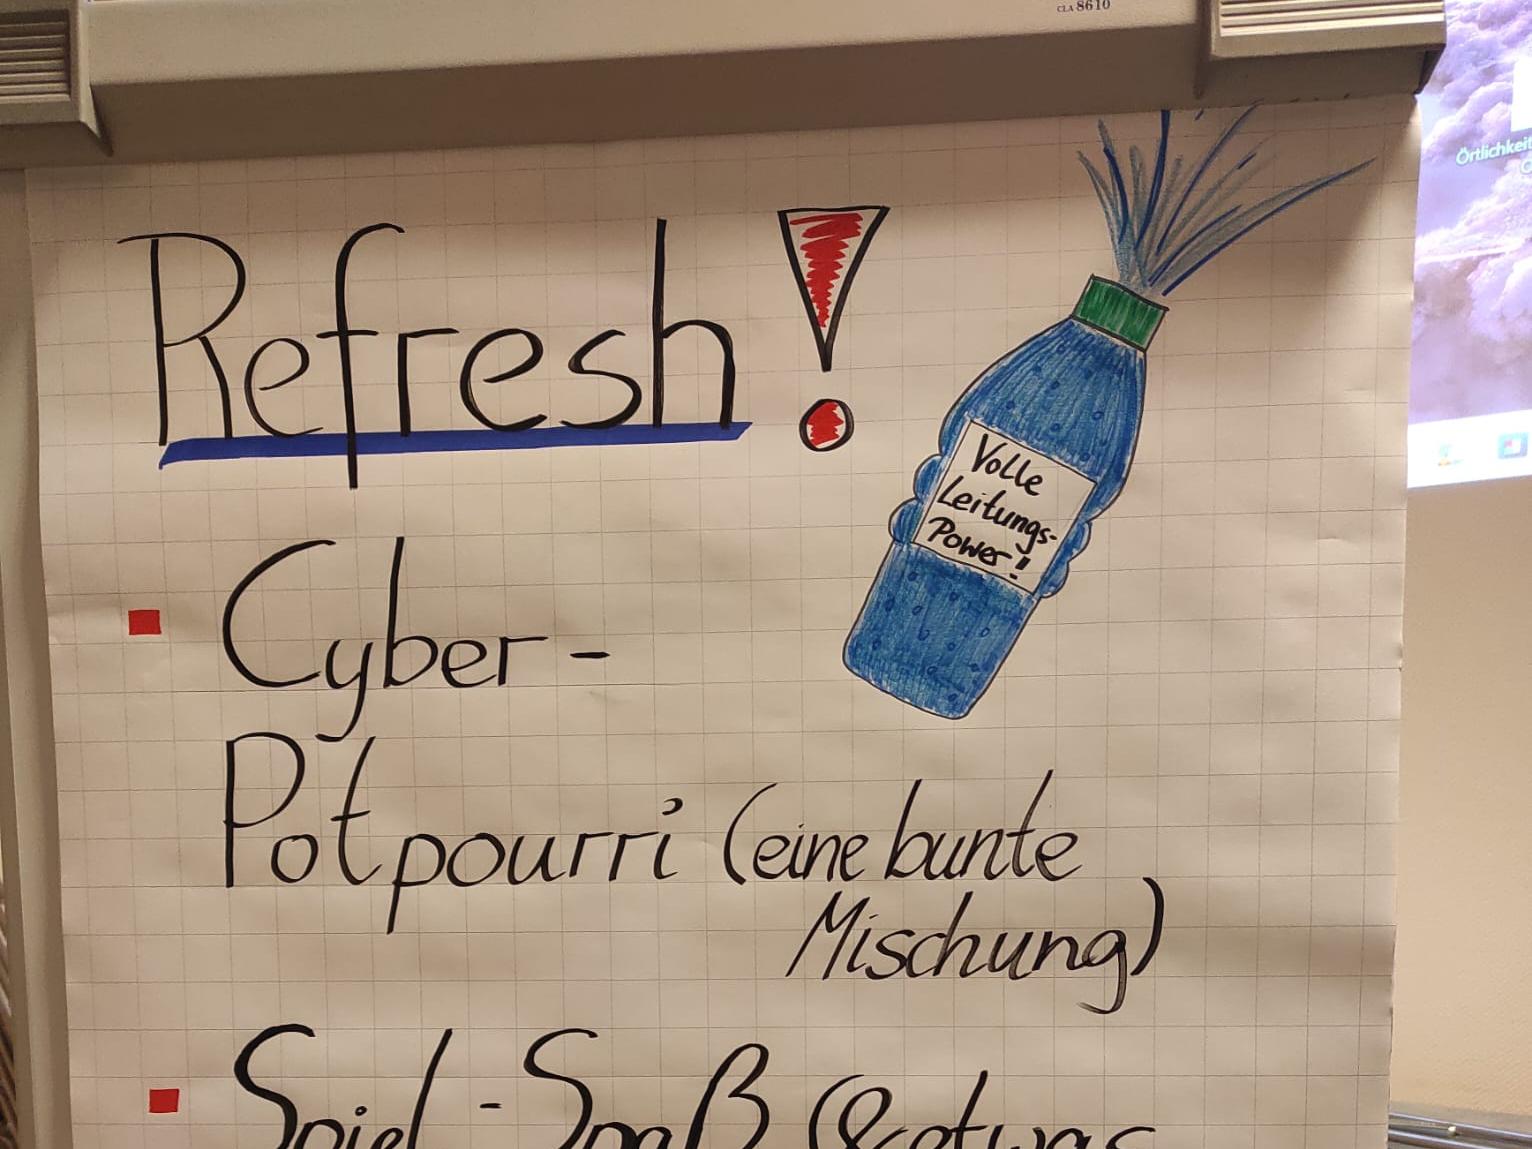 CLA 8610
Refresh!
Volle
Leitungs-
Power!
Cyber-
Potpourri (eine bunte
Mischung)
Spiel-Spaß (& etwas
Örtlichkeit